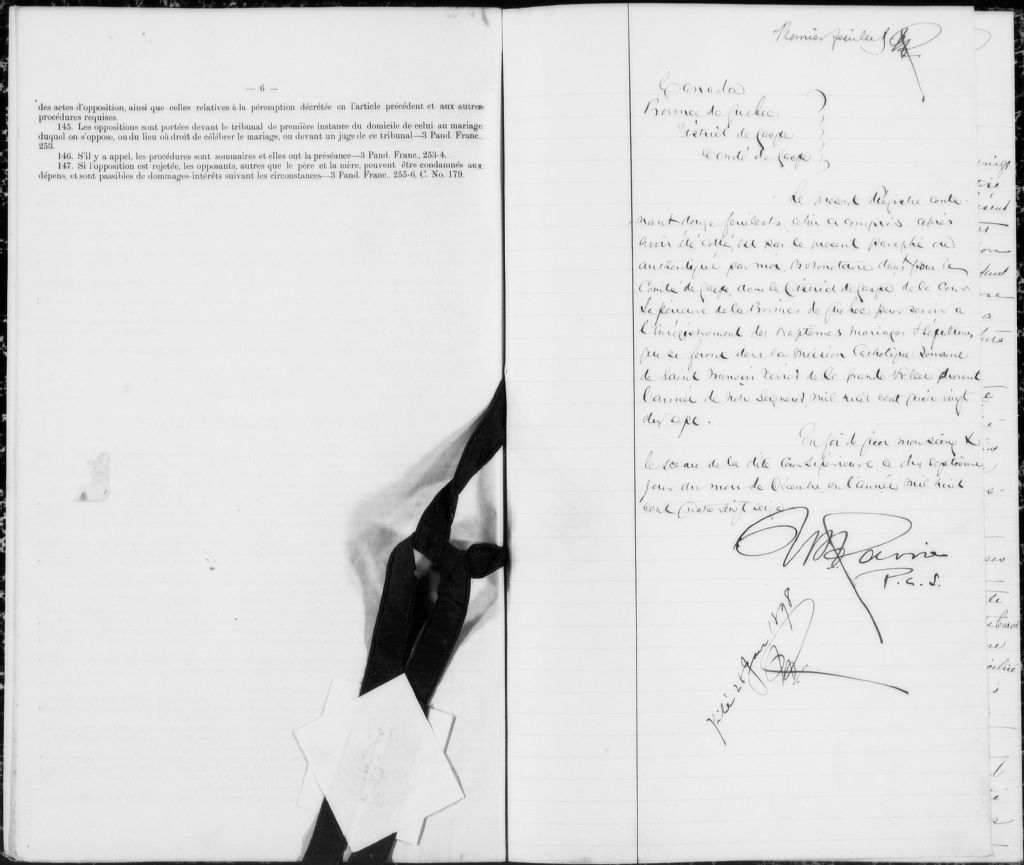 — 6 —
des actes d'opposition, ainsi que celles relatives à la péremption décrétée en l'article précédent et aux autres
procédures requises.
145. Les oppositions sont portées devant le tribunal de première instance du domicile de celui au mariage
duquel on s'oppose, ou du lieu où droit de célébrer le mariage, ou devant un juge de ce tribunal—3 Pand. Franc.,
253.
146. S'il y a appel, les procédures sont sommaires et elles ont la préséance—3 Pand. Franc., 253-4.
147. Si l'opposition est rejetée, les opposants, autres que le père et la mère, peuvent être condamnés aux
dépens, et sont passibles de dommages-intérêts suivant les circonstances—3 Pand. Franc., 255-6, C. No. 179.
Premier feuillet
Canada
Province de Quebec
District de Gaspé
Comté de Gaspé
Le présent Régistre conte
nant douze feuillets, celui ci compris, après
avoir été cotté, est par le présent paraphé ou
authentiqué par moi Protonotaire dans & pour le
Comté de Gaspé dans le District de Gaspé, de la Cour
Supérieure de la Province de Québec pour servir à
l'enrégistrement des Baptêmes Mariages & Sépultures
que se feront dans la Mission Catholique Romaine
de Saint François Xavier de la Grande Vallée durant
l'année de notre Seigneur mil huit cent quatre vingt
dix sept.
En foi de quoi mon seing &
le sceau de la dite Cour Supérieure ce dix septième
jour du mois de Décembre en l'année mil huit
cent quatre vingt seize
P. C. S.
Filé 28 Jan 1898